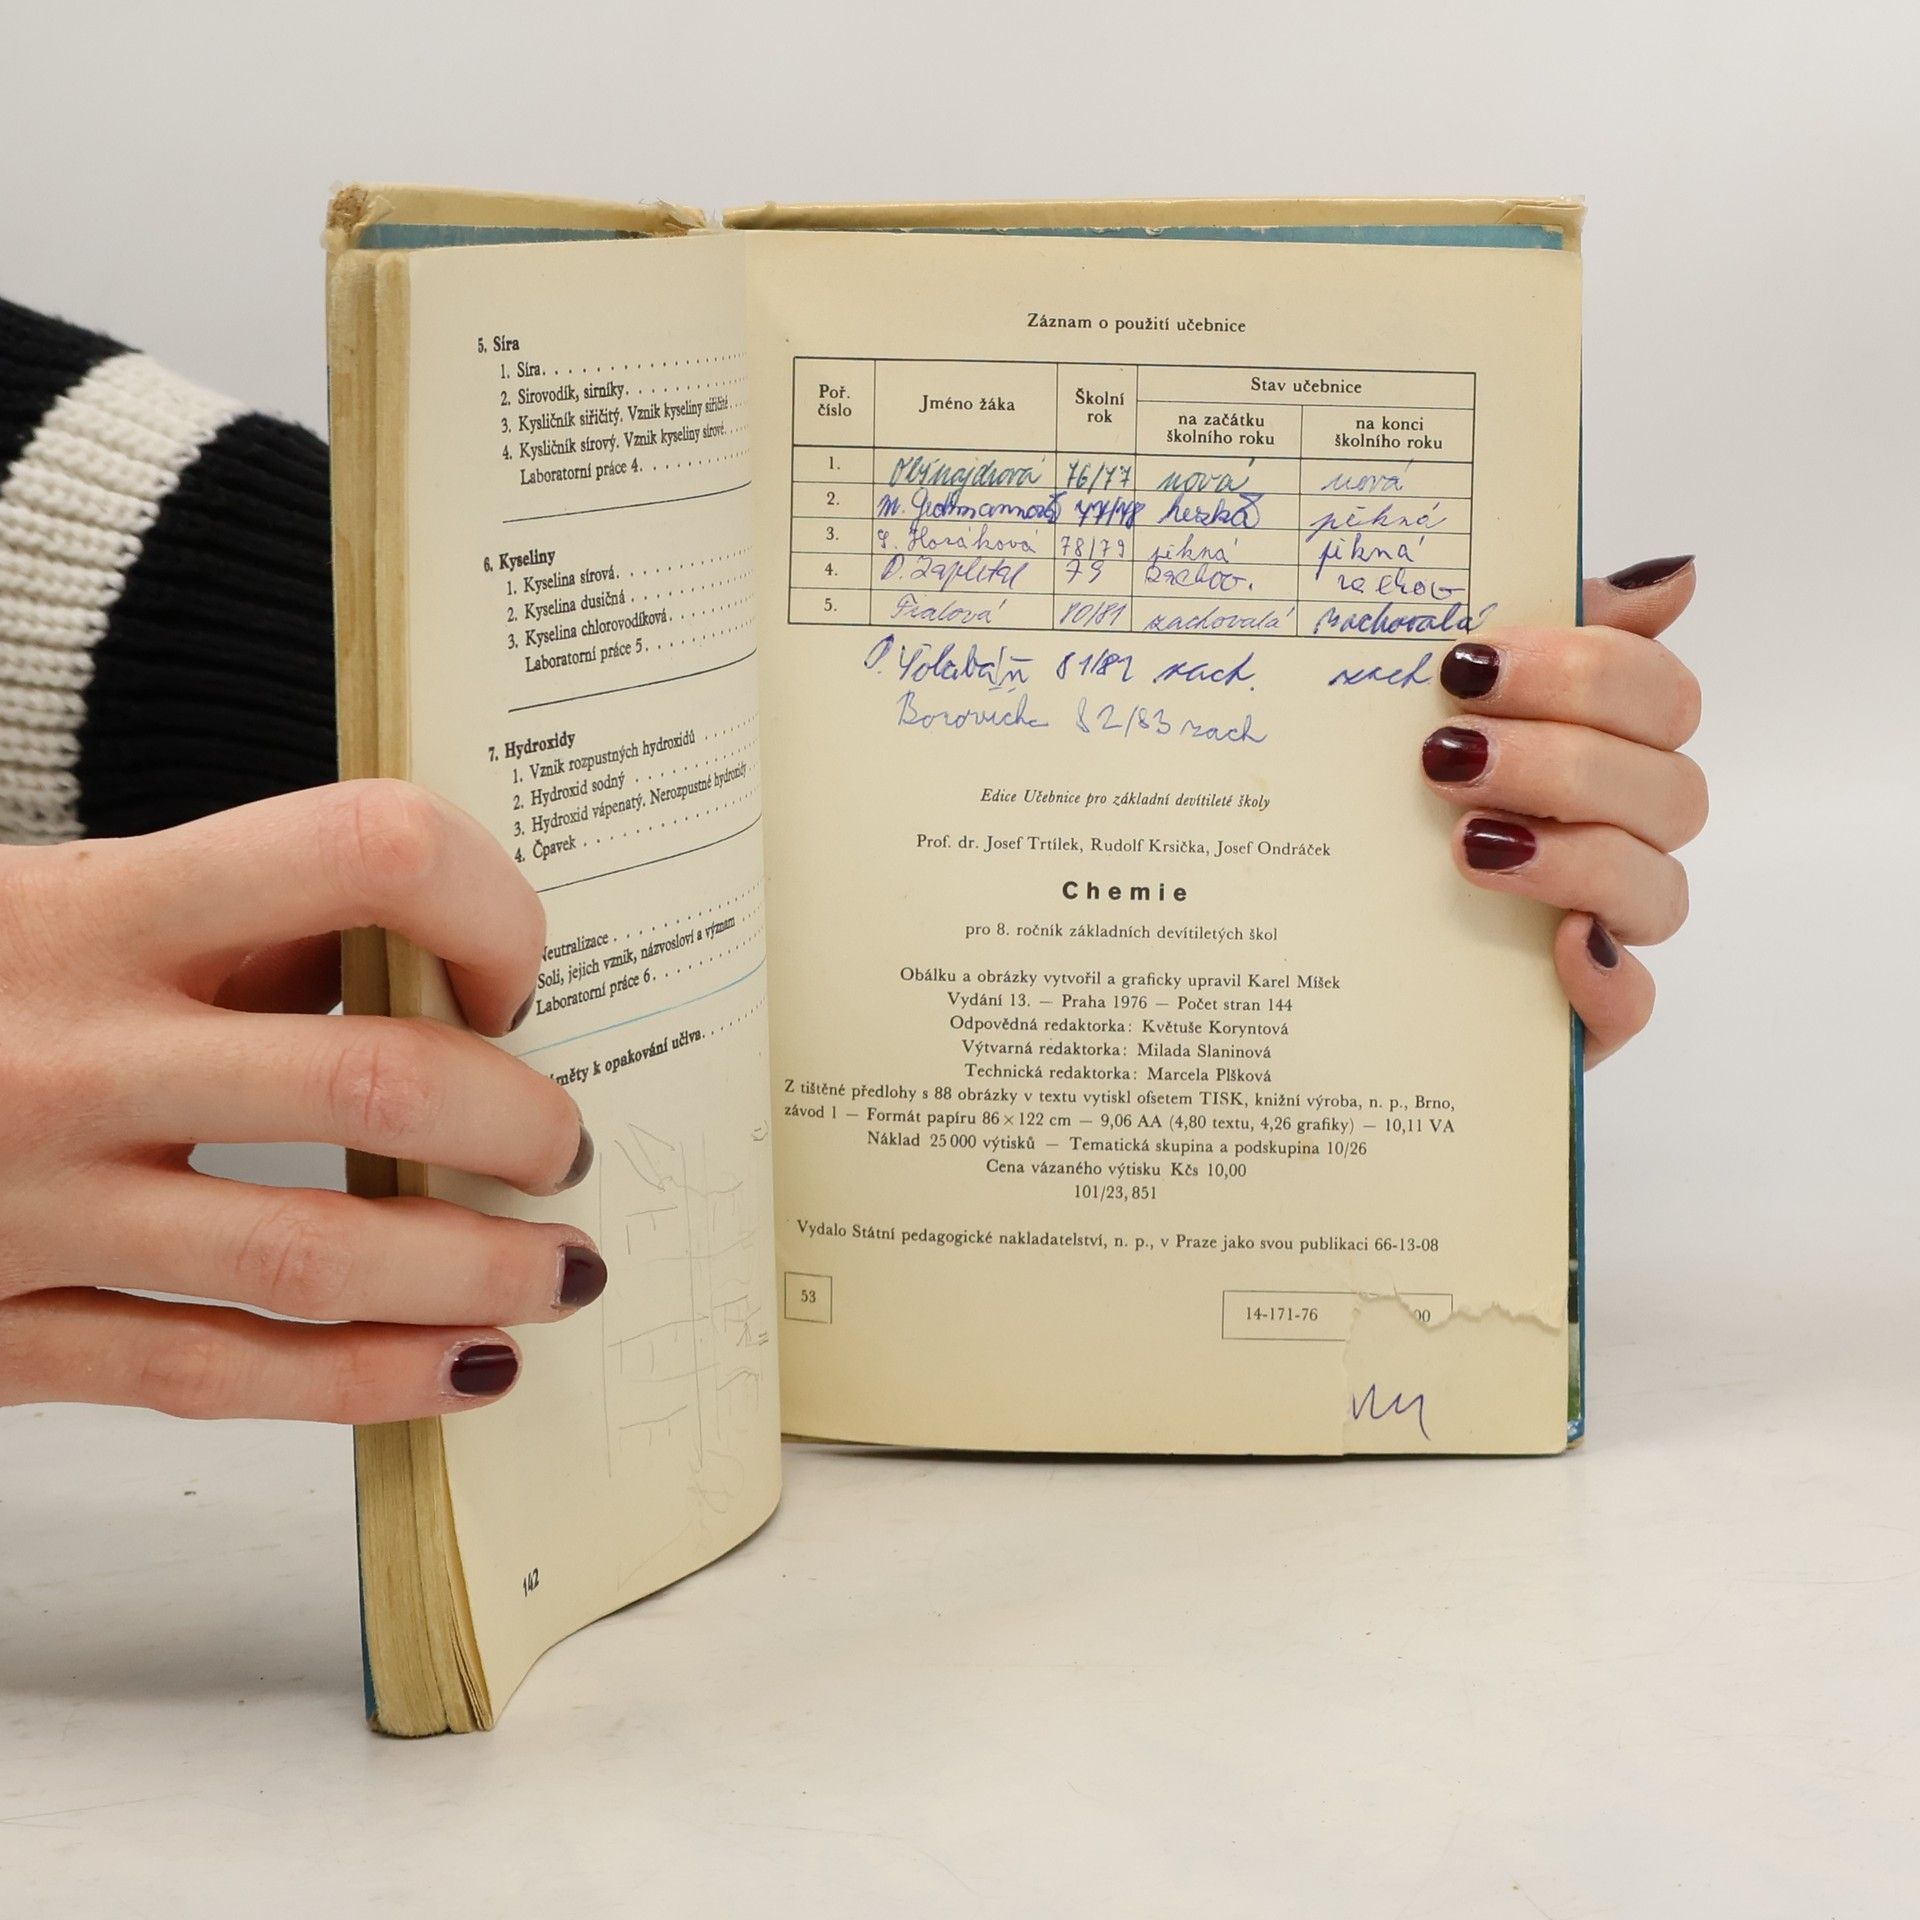 5. Síra
1. Síra. . . . . . . . . . . . . . . .
2. Sirovodík, sirníky. . . . . . . . .
3. Kysličník siřičitý. Vznik kyseliny siřičité. . . .
4. Kysličník sírový. Vznik kyseliny sírové. . . .
Laboratorní práce 4. . . . . . . . .
6. Kyseliny
1. Kyselina sírová. . . . . . . . . .
2. Kyselina dusičná . . . . . . . . .
3. Kyselina chlorovodíková. . . . . . .
Laboratorní práce 5. . . . . . . . .
7. Hydroxidy
1. Vznik rozpustných hydroxidů . . . . .
2. Hydroxid sodný . . . . . . . . . .
3. Hydroxid vápenatý. Nerozpustné hydroxidy .
4. Čpavek . . . . . . . . . . . . .
Neutralizace . . . . . . . . . . .
Soli, jejich vznik, názvosloví a význam
Laboratorní práce 6. . . . . . . . .
měty k opakování učiva. . . . . .
142
Záznam o použití učebnice
Poř. číslo Jméno žáka Školní rok Stav učebnice
na začátku školního roku na konci školního roku
1. 76/77 nová nová
2. M. 77/78 hezká pěkná
3. Horáková 78/79 pěkná pěkná
4. D. Zapletal 79 zachov. zachov
5. Fialová 80/81 zachovalá zachovalá
81/82 zach. zach
82/83 zach
Edice Učebnice pro základní devítileté školy
Prof. dr. Josef Trtílek, Rudolf Krsička, Josef Ondráček
Chemie
pro 8. ročník základních devítiletých škol
Obálku a obrázky vytvořil a graficky upravil Karel Míšek
Vydání 13. — Praha 1976 — Počet stran 144
Odpovědná redaktorka: Květuše Koryntová
Výtvarná redaktorka: Milada Slaninová
Technická redaktorka: Marcela Plšková
Z tištěné předlohy s 88 obrázky v textu vytiskl ofsetem TISK, knižní výroba, n. p., Brno,
závod 1 — Formát papíru 86 × 122 cm — 9,06 AA (4,80 textu, 4,26 grafiky) — 10,11 VA
Náklad 25 000 výtisků — Tematická skupina a podskupina 10/26
Cena vázaného výtisku Kčs 10,00
101/23, 851
Vydalo Státní pedagogické nakladatelství, n. p., v Praze jako svou publikaci 66-13-08
53
14-171-76 00